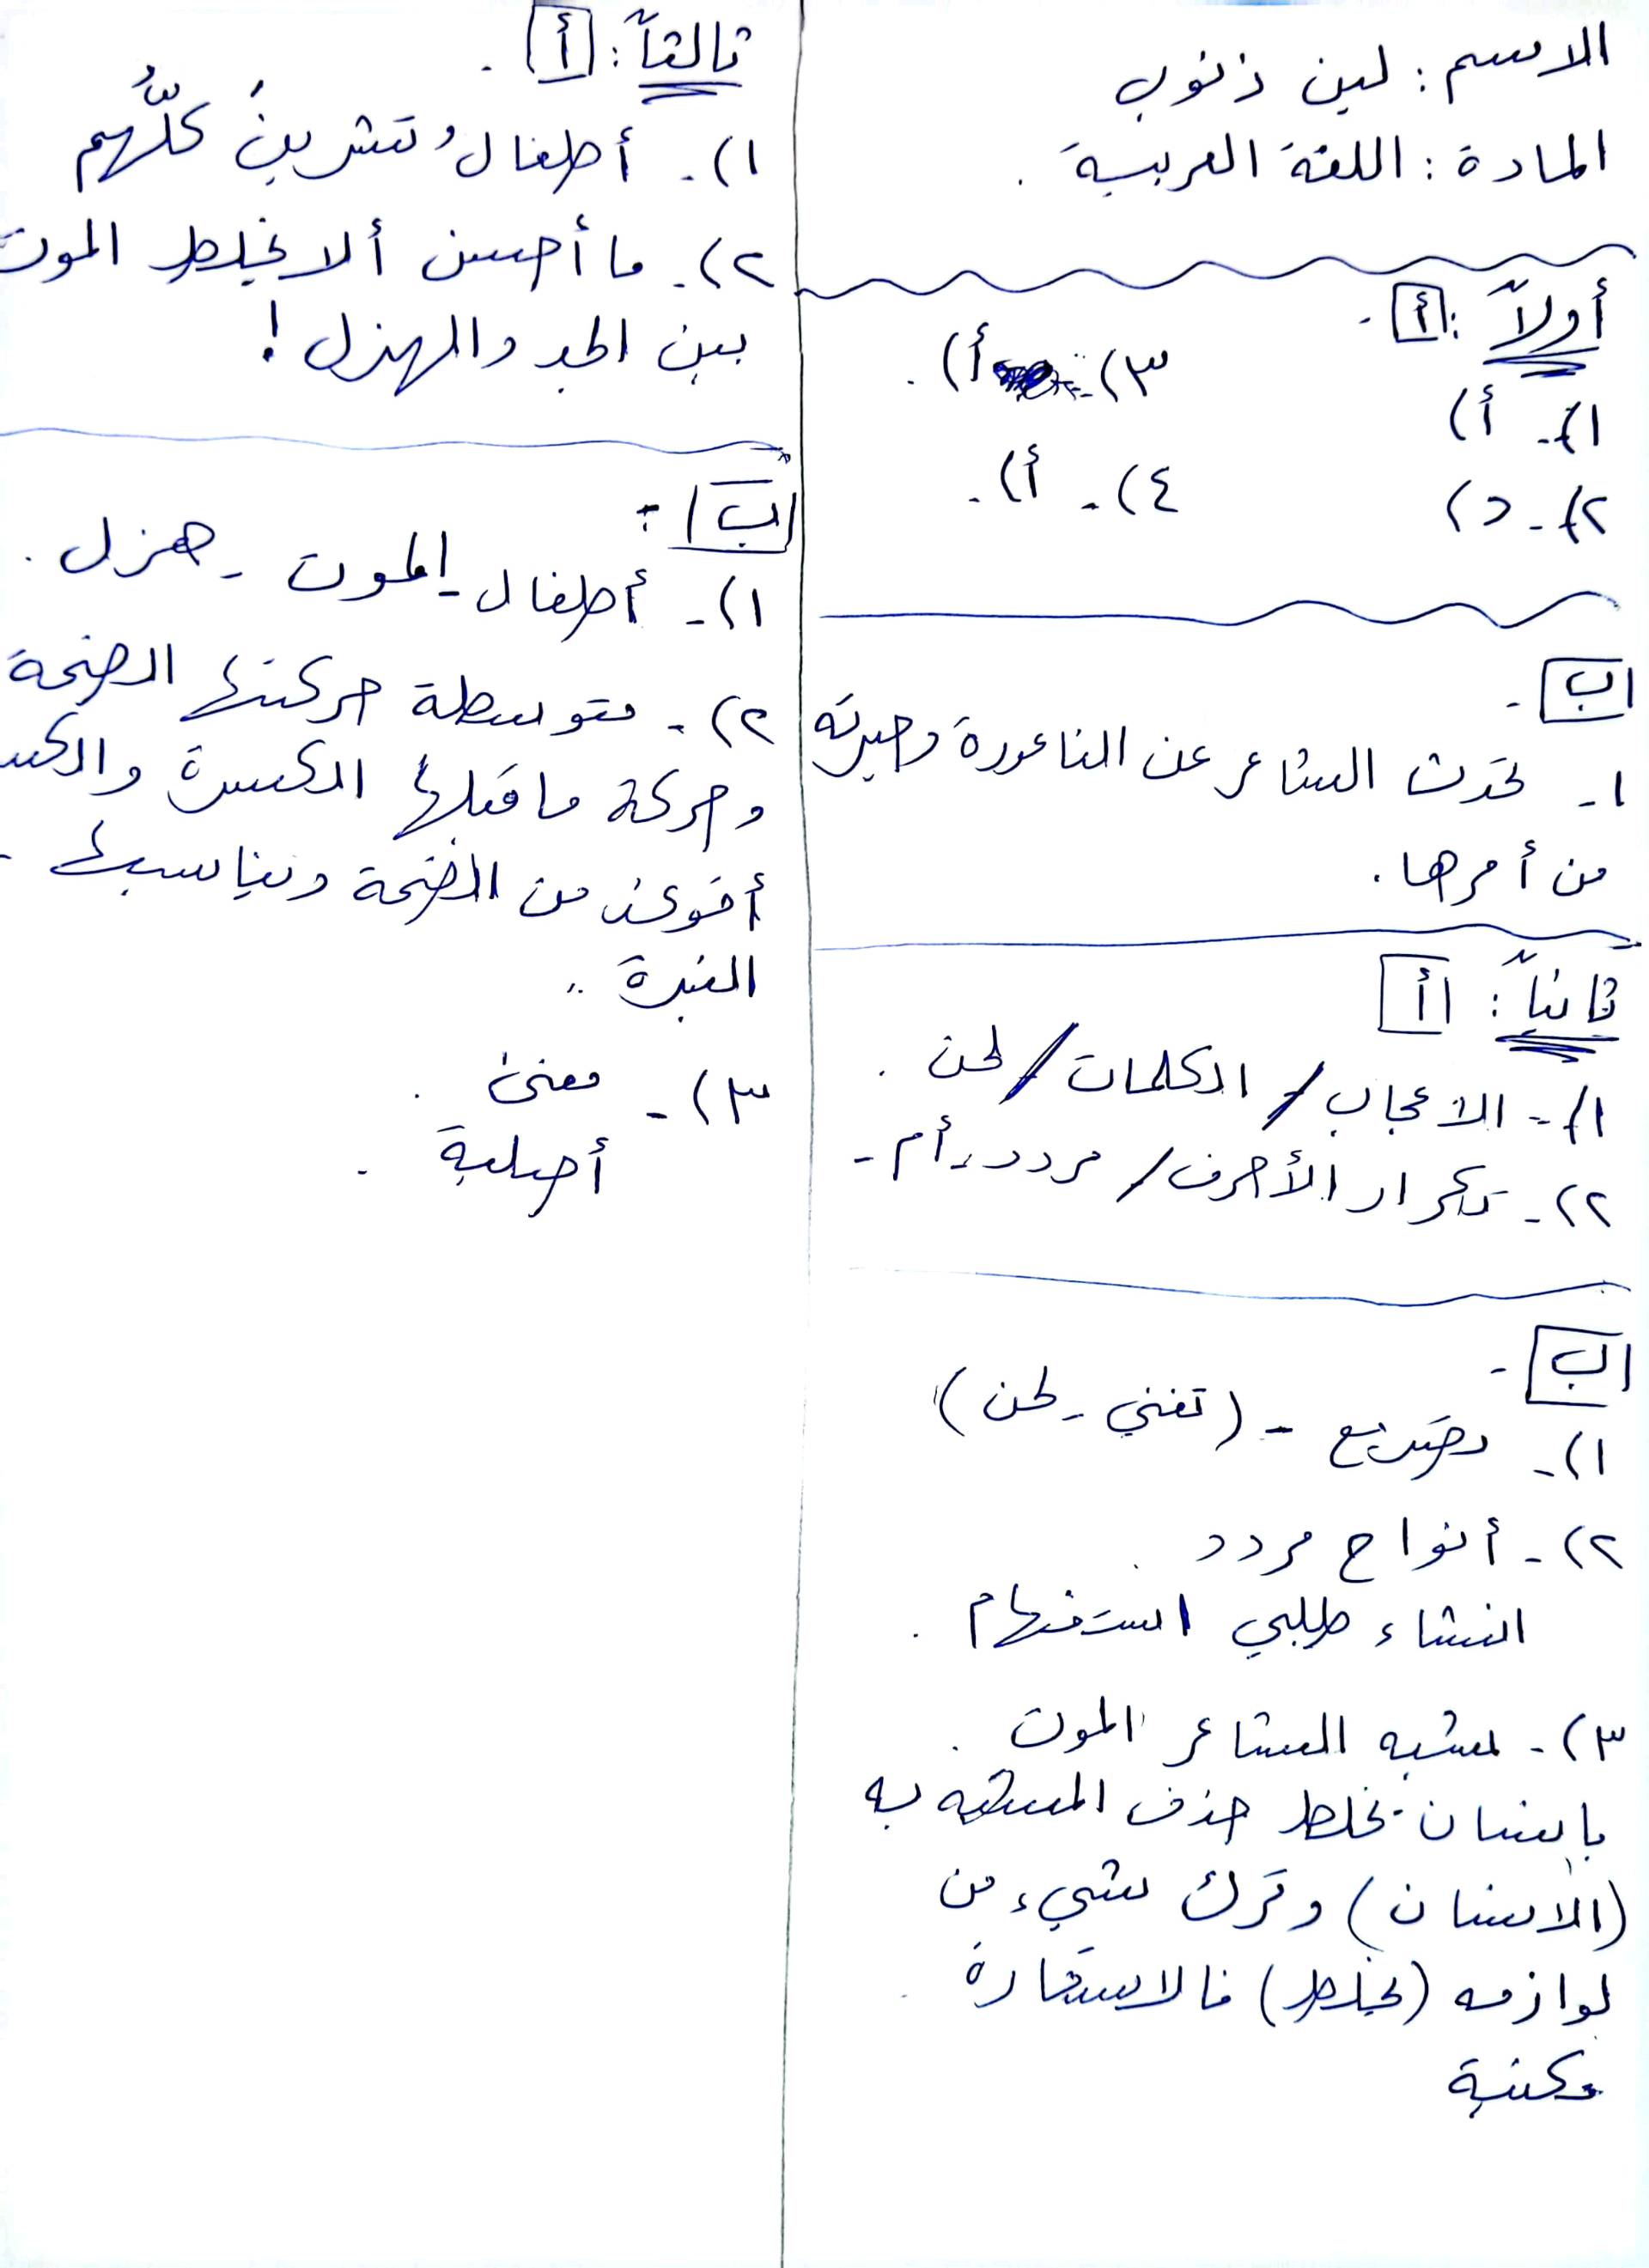 الاسم : لين ذنوب
المادة : اللغة العربية .
أولاً : أ .
١) - أ)
٢) - د)
٣) - أ) .
٤) - أ) .
ب .
١ - تحدث الشاعر عن الناعورة وحيرته
من أمرها .
ثانياً : أ
١) - الاعجاب / الكلمات / لحن .
٢) - تكرار الأحرف / مردد ، أم -
ب .
١) - تصريع - (تغني - لحن)
٢) - أنواح مردد .
انشاء طلبي استفهام .
٣) - لشبه الشاعر الموت .
بإنسان يخلط حذف المشبه به
(الانسان) وترك شيء من
لوازمه (يخلط) فالاستعارة
مكنية
ثالثاً : أ .
١) - أطفالُ تشرينَ كلُّهم
٢) - ما أحسن ألا يخلط الموت
بين الجد والهزل !
ب :
١) - أطفال - الموت - هزل .
٢) - متوسطة حركتها الضمة
وحركة ما قبلها الكسرة والكس
أقوى من الضمة ويناسبها -
النبرة ..
٣) - معنى .
أصلية .